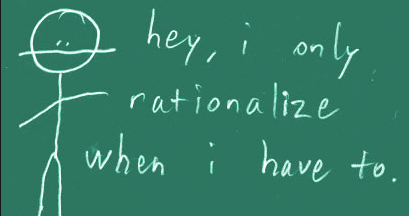 hey, i only
rationalize
when i have to.